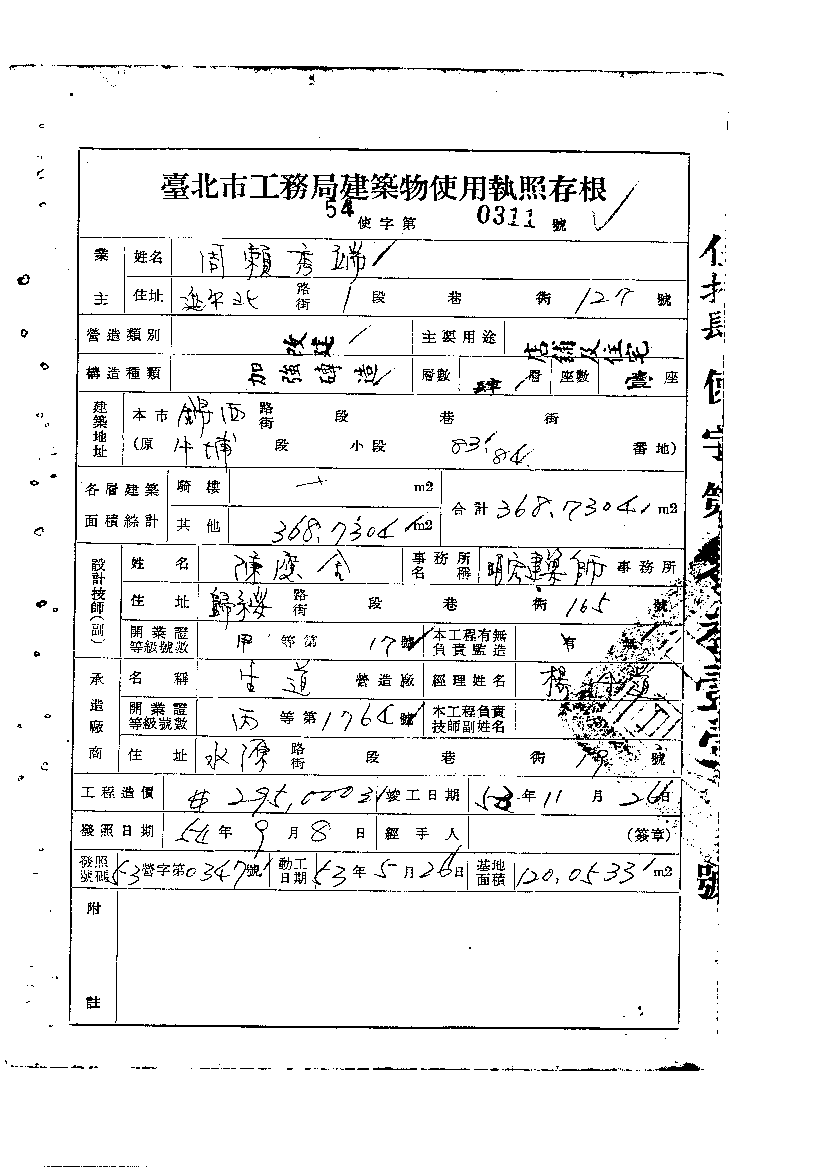 臺北市工務局建築物使用執照存根
54 使字第 0311 號
業主 姓名 周賴秀端
住址 延平北 路街 1 段 巷 街 127 號
營造類別 改建 主要用途 店舖及住宅
構造種類 加強磚造 層數 肆 層 座數 壹 座
建築地址 本市 錦西 路街 段 巷 街
(原 牛埔 段 小段 83, 84 番地)
各層建築面積綜計 騎樓 m2 合計 368.7304 m2
其他 368.7304 m2
設計技師(副) 姓名 陳 事務所名稱 建築師 事務所
住址 歸綏 路街 段 巷 街 165 號
開業證等級號數 甲 等第 17 號 本工程有無負責監造 有 無
承造廠商 名稱 生道 營造廠 經理姓名 楊
開業證等級號數 丙 等第 1764 號 本工程負責技師副姓名
住址 水源 路街 段 巷 街 19 號
工程造價 # 295,000 竣工日期 53 年 11 月 26 日
發照日期 54 年 9 月 8 日 經手人 (簽章)
發照號碼 53 營字第 0347 號 動工日期 53 年 5 月 26 日 基地面積 120.0533 m2
附註
使字第
號